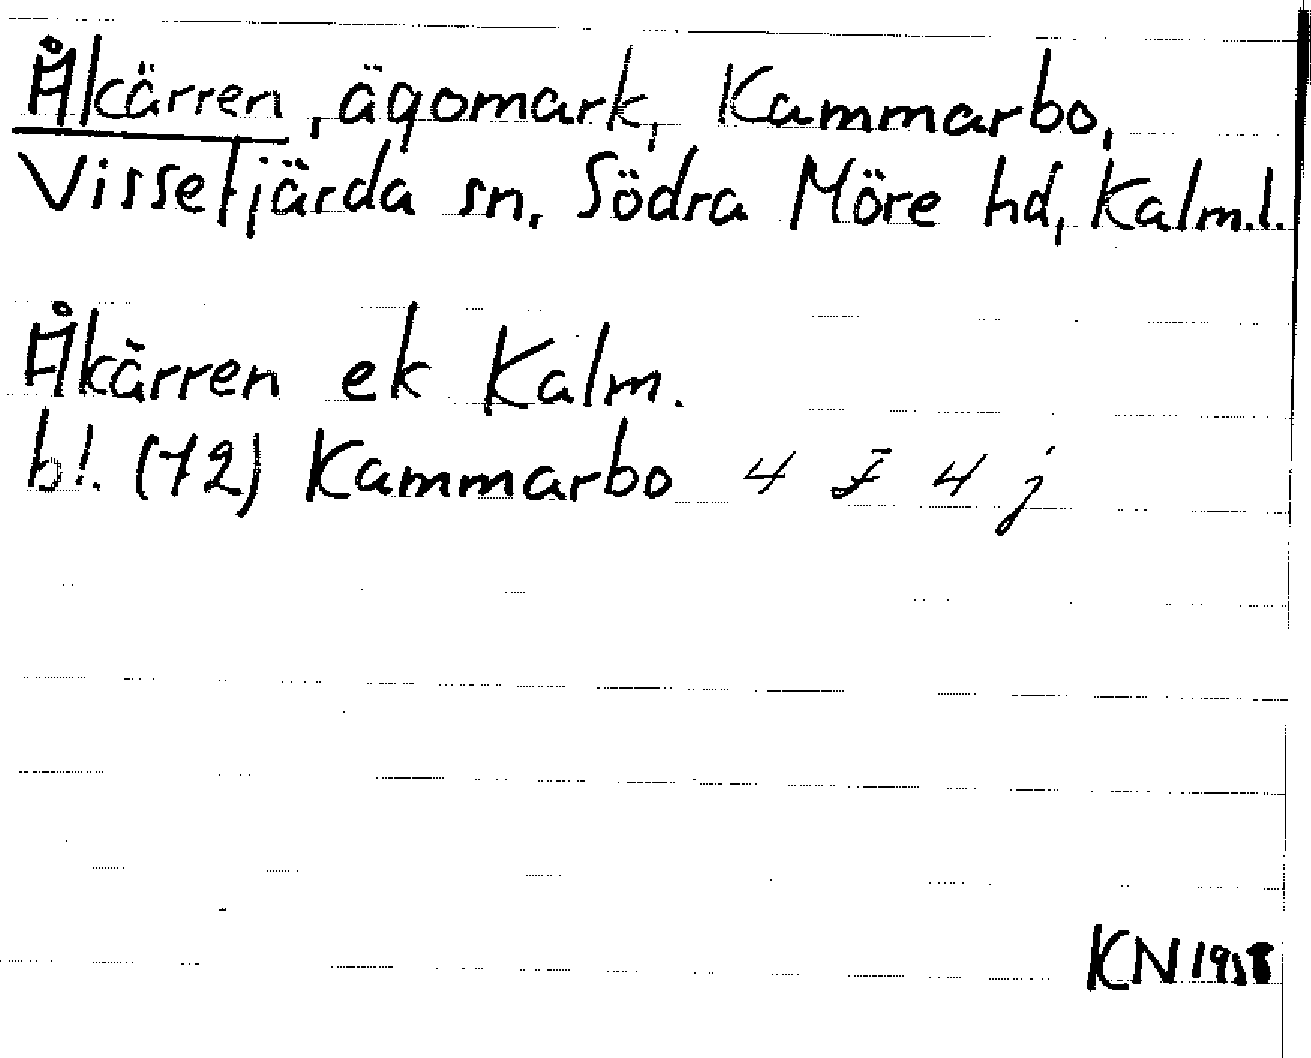 Åkärren, ägomark, Kammarbo,
Vissefjärda sn. Södra Möre hd, Kalm.l.
Åkärren ek Kalm.
bl. (72) Kammarbo 4 F 4 j
KN 1958